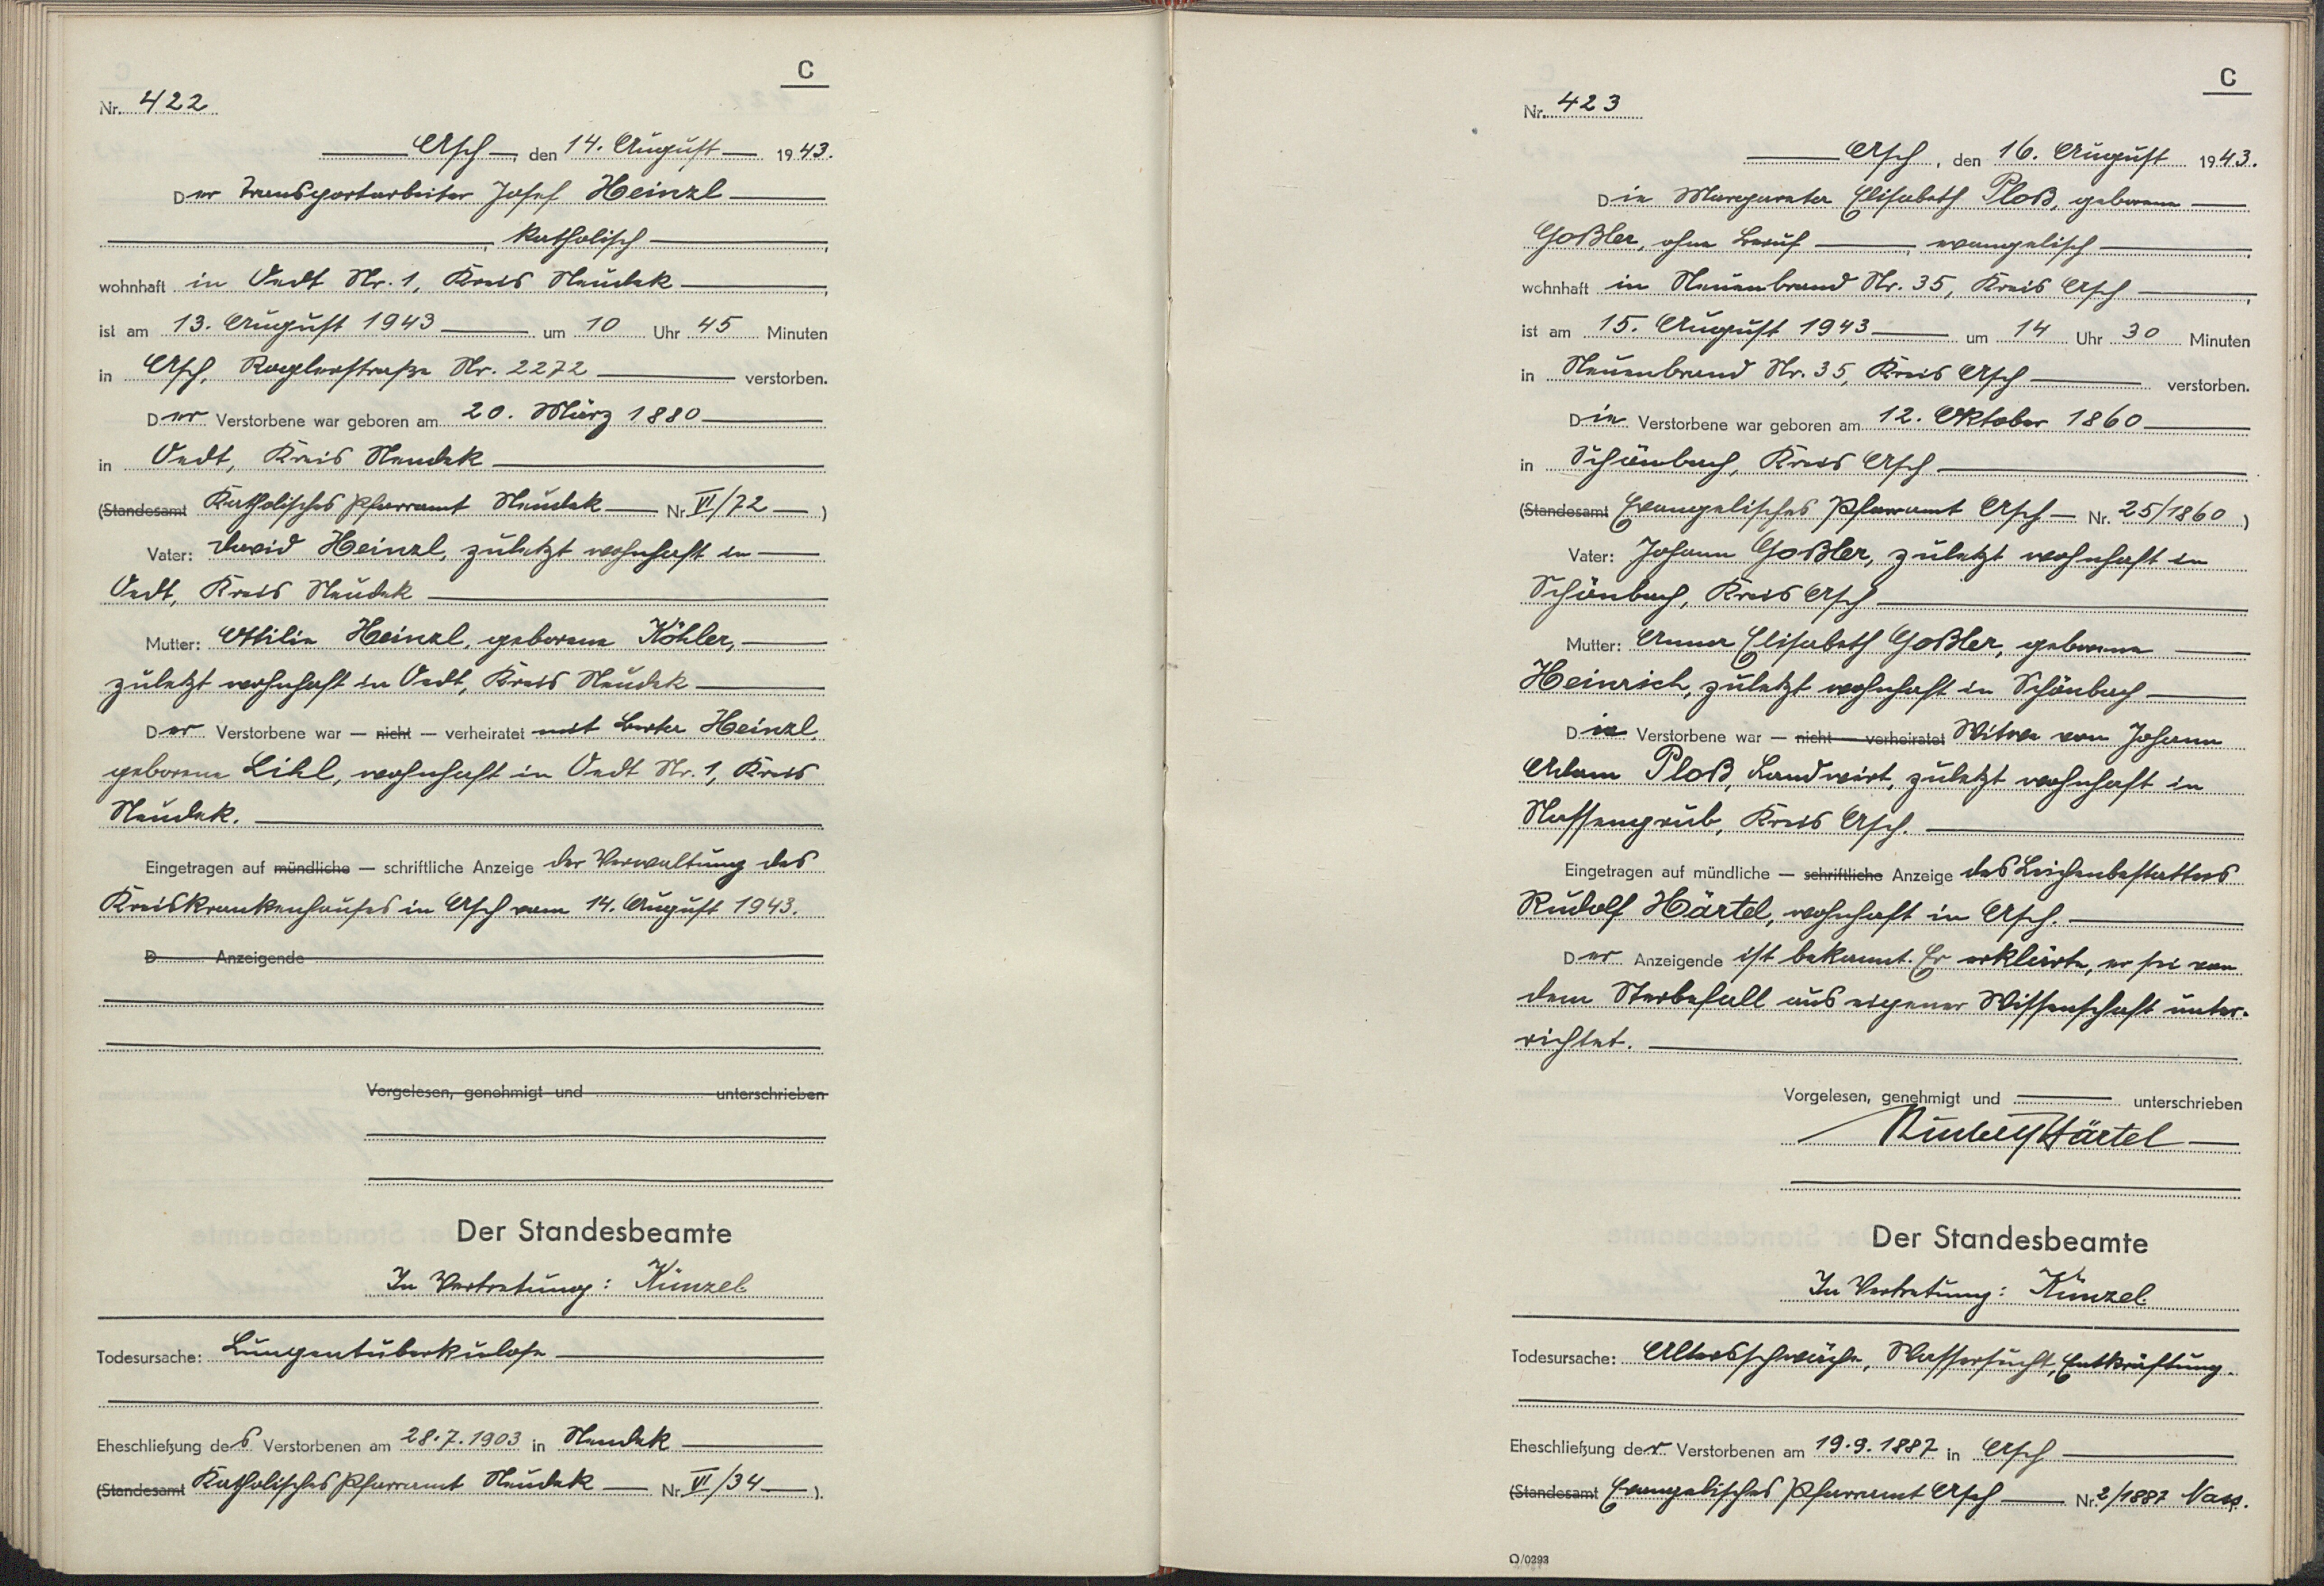 C
Nr. 422
Asch, den 14. August 1943.
Der Transportarbeiter Josef Heinzl
, katholisch,
wohnhaft in Oedt Nr. 1, Kreis Neudek,
ist am 13. August 1943 um 10 Uhr 45 Minuten
in Asch, Roglerstraße Nr. 2272 verstorben.
Der Verstorbene war geboren am 20. März 1880
in Oedt, Kreis Neudek
(Standesamt Katholisches Pfarramt Neudek Nr. VI/72)
Vater: David Heinzl, zuletzt wohnhaft in
Oedt, Kreis Neudek
Mutter: Ottilie Heinzl, geborene Köhler,
zuletzt wohnhaft in Oedt, Kreis Neudek
Der Verstorbene war — nicht — verheiratet mit Berta Heinzl,
geborene Likl, wohnhaft in Oedt Nr. 1, Kreis
Neudek.
Eingetragen auf mündliche — schriftliche Anzeige der Verwaltung des
Kreiskrankenhauses in Asch vom 14. August 1943.
D Anzeigende
Vorgelesen, genehmigt und unterschrieben
Der Standesbeamte
In Vertretung: Künzel
Todesursache: Lungentuberkulose
Eheschließung des Verstorbenen am 28.7.1903 in Neudek
(Standesamt Katholisches Pfarramt Neudek Nr. VI/34).
C
Nr. 423
Asch, den 16. August 1943.
Die Margareta Elisabeth Ploß, geborene
Goßler, ohne Beruf, evangelisch,
wohnhaft in Neuenbrand Nr. 35, Kreis Asch,
ist am 15. August 1943 um 14 Uhr 30 Minuten
in Neuenbrand Nr. 35, Kreis Asch verstorben.
Die Verstorbene war geboren am 12. Oktober 1860
in Schönbach, Kreis Asch
(Standesamt Evangelisches Pfarramt Asch Nr. 25/1860)
Vater: Johann Goßler, zuletzt wohnhaft in
Schönbach, Kreis Asch
Mutter: Anna Elisabeth Goßler, geborene
Heinrich, zuletzt wohnhaft in Schönbach
Die Verstorbene war — nicht — verheiratet Witwe von Johann
Adam Ploß, Landwirt, zuletzt wohnhaft in
Nassengrub, Kreis Asch.
Eingetragen auf mündliche — schriftliche Anzeige des Leichenbestatters
Rudolf Härtel, wohnhaft in Asch.
Der Anzeigende ist bekannt. Er erklärte, er sei von
dem Sterbefall aus eigener Wissenschaft unter-
richtet.
Vorgelesen, genehmigt und unterschrieben
Rudolf Härtel
Der Standesbeamte
In Vertretung: Künzel
Todesursache: Altersschwäche, Wassersucht, Entkräftung.
Eheschließung der Verstorbenen am 19.9.1887 in Asch
(Standesamt Evangelisches Pfarramt Asch Nr. 2/1887 Nass.
O/0293